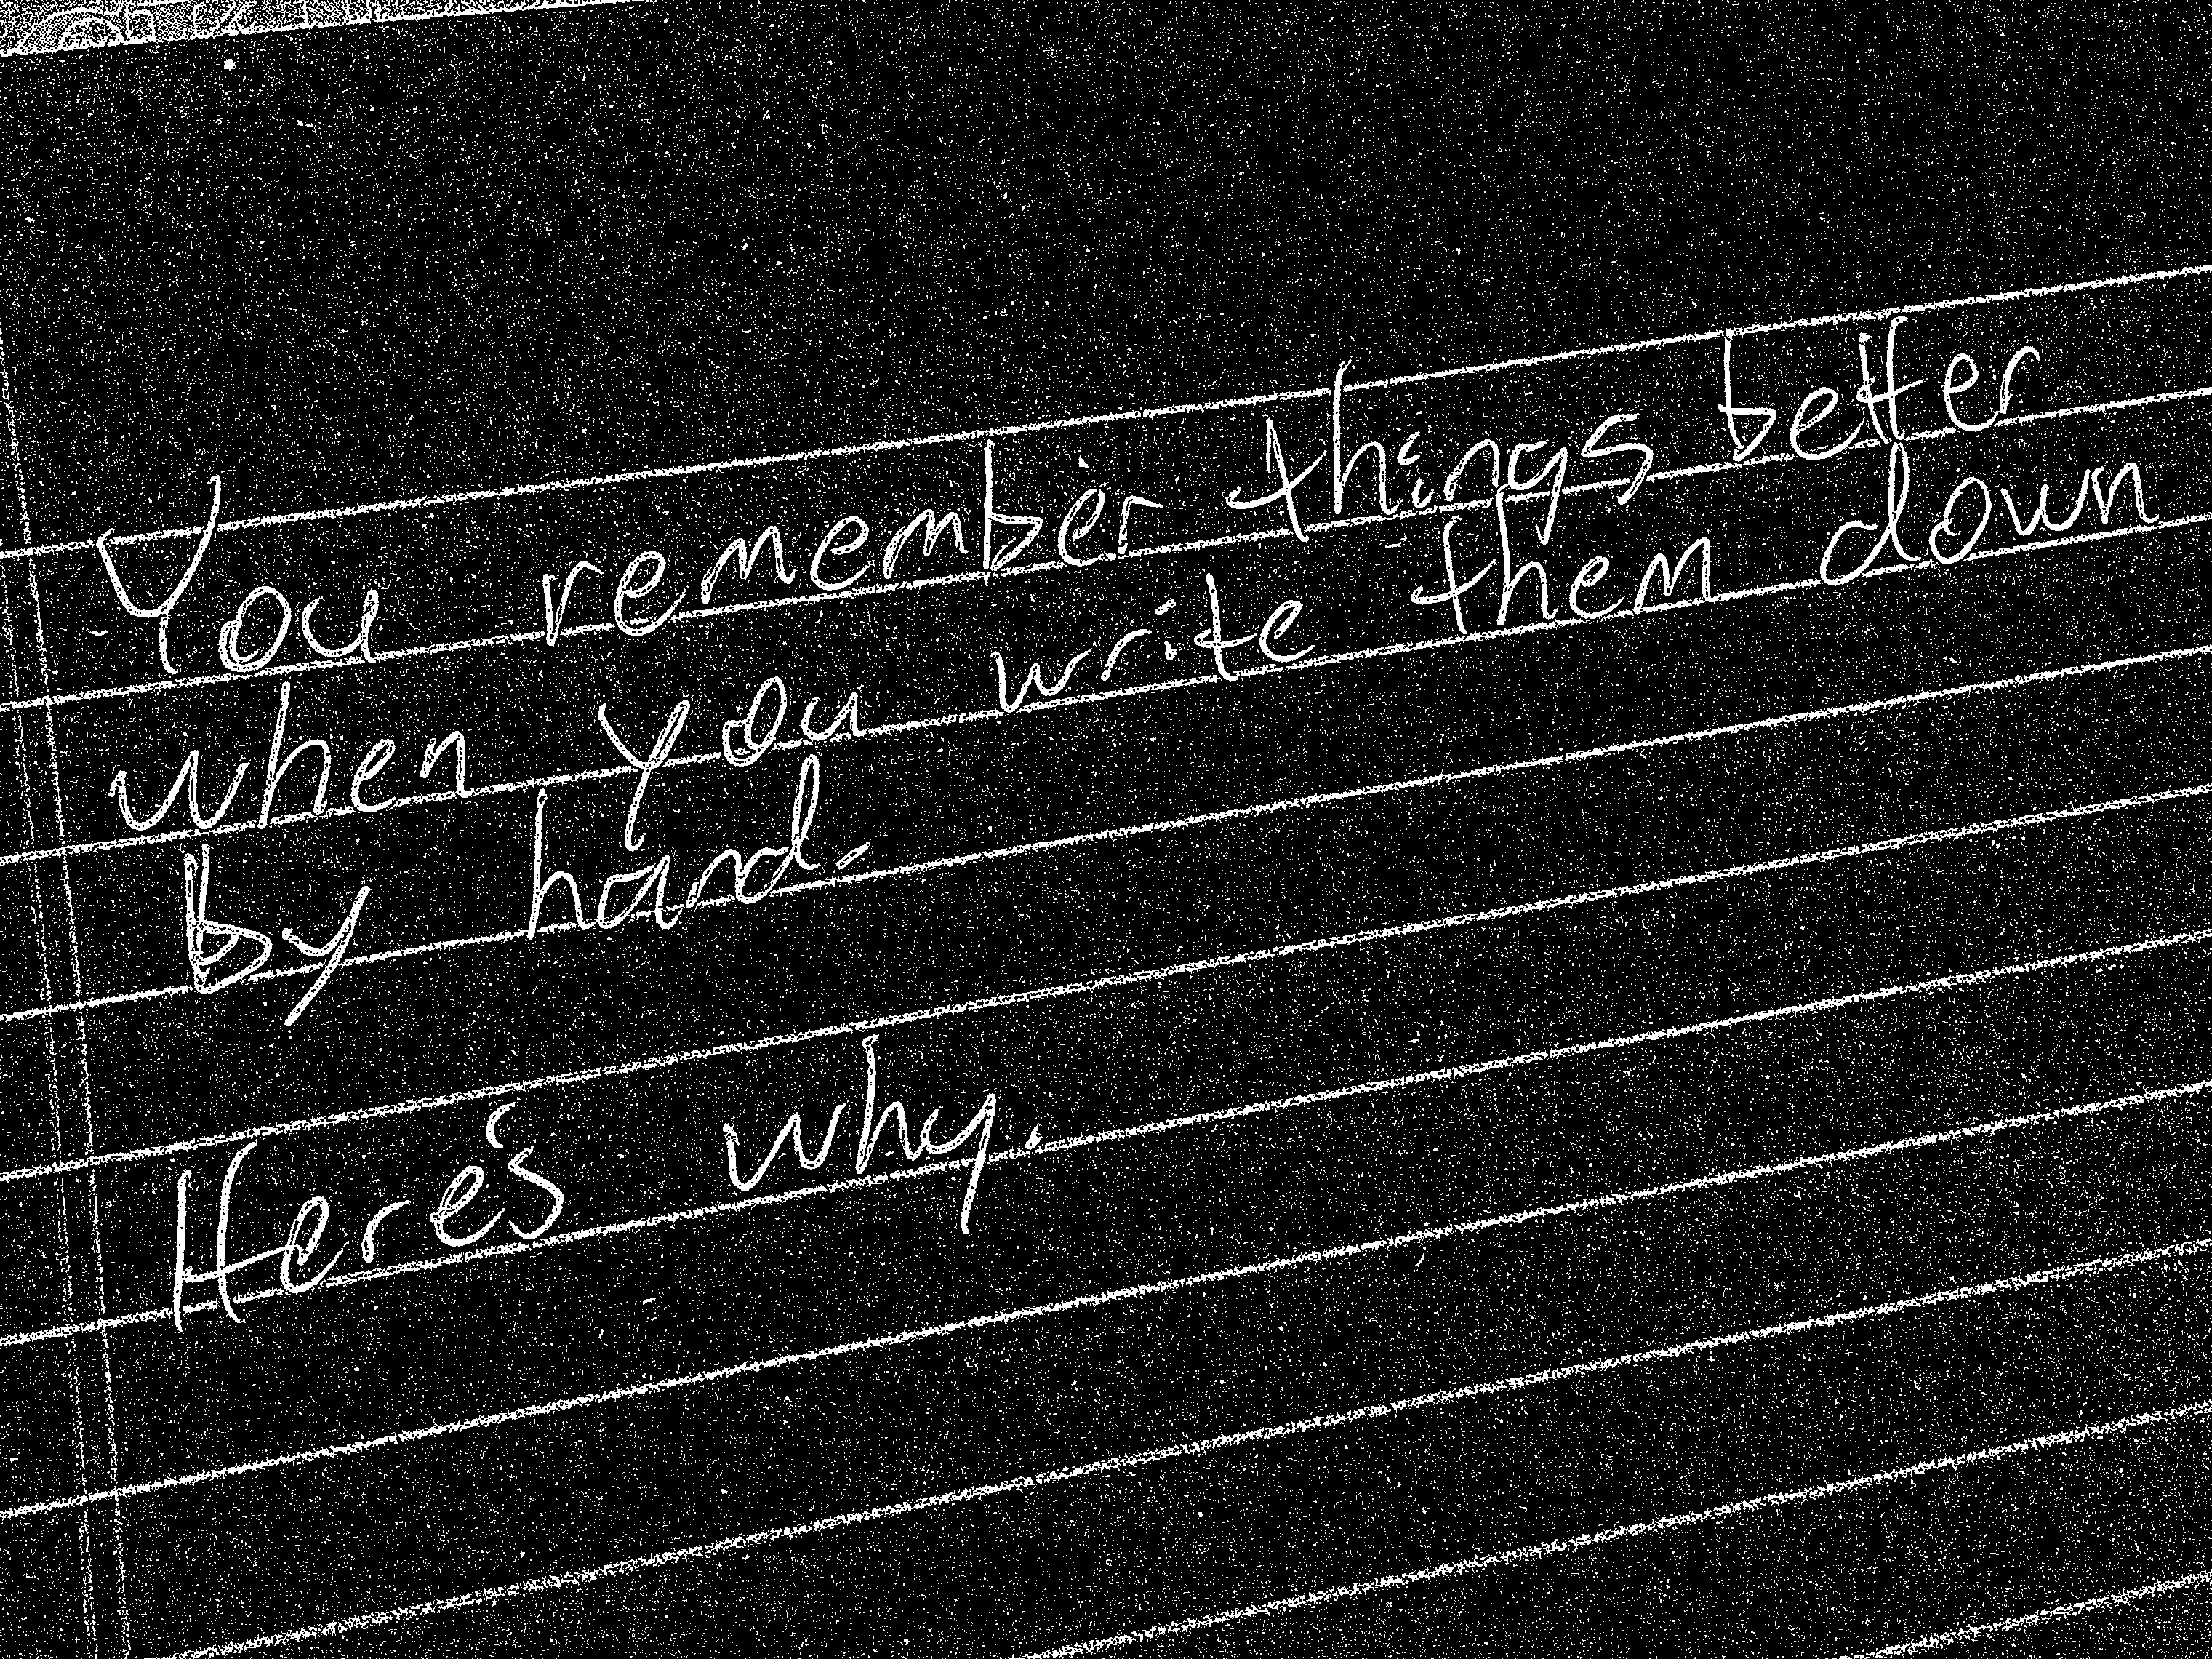 You remember things better
when you write them down
by hand.
Here's why.